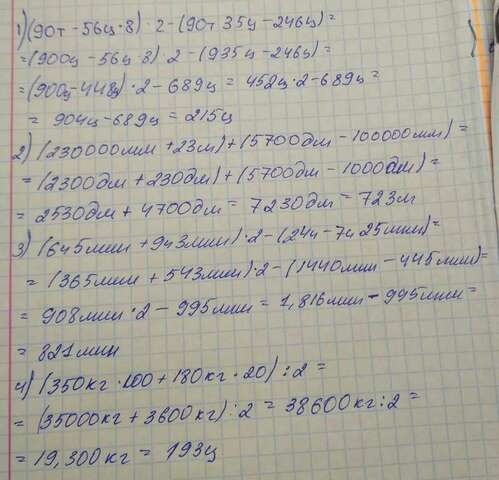 1) (90т - 56ц · 8) · 2 - (90т 35ц - 246ц) =
= (900ц - 56ц · 8) · 2 - (935ц - 246ц) =
= (900ц - 448ц) · 2 - 689ц = 452ц · 2 - 689ц =
= 904ц - 689ц = 215ц
2) (230000мм + 23м) + (5700дм - 100000мм) =
= (2300дм + 230дм) + (5700дм - 1000дм) =
= 2530дм + 4700дм = 7230дм = 723м
3) (6ч5мин + 9ч3мин) · 2 - (24ч - 7ч 25мин) =
= (365мин + 543мин) · 2 - (1440мин - 445мин) =
= 908мин · 2 - 995мин = 1,816мин - 995мин =
= 821мин
4) (350кг · 100 + 180кг · 20) : 2 =
= (35000кг + 3600кг) : 2 = 38600кг : 2 =
= 19,300кг = 193ц